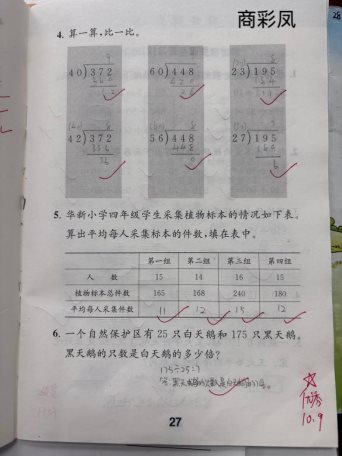 商彩凤
4. 算一算,比一比。
9 8 8
40)372 60)448 23)195
360 420 184
12 28 11
8 8
42)372 56)448 27)195
336 448 189
36 0 6
5. 华新小学四年级学生采集植物标本的情况如下表。
算出平均每人采集标本的件数,填在表中。
第一组 第二组 第三组 第四组
人 数 15 14 16 15
植物标本总件数 165 168 240 180
平均每人采集件数 11 12 15 12
6. 一个自然保护区有 25 只白天鹅和 175 只黑天鹅。
黑天鹅的只数是白天鹅的多少倍?
175÷25=7
答:黑天鹅的只数是白天鹅的7倍。
优秀
10.9
27
28